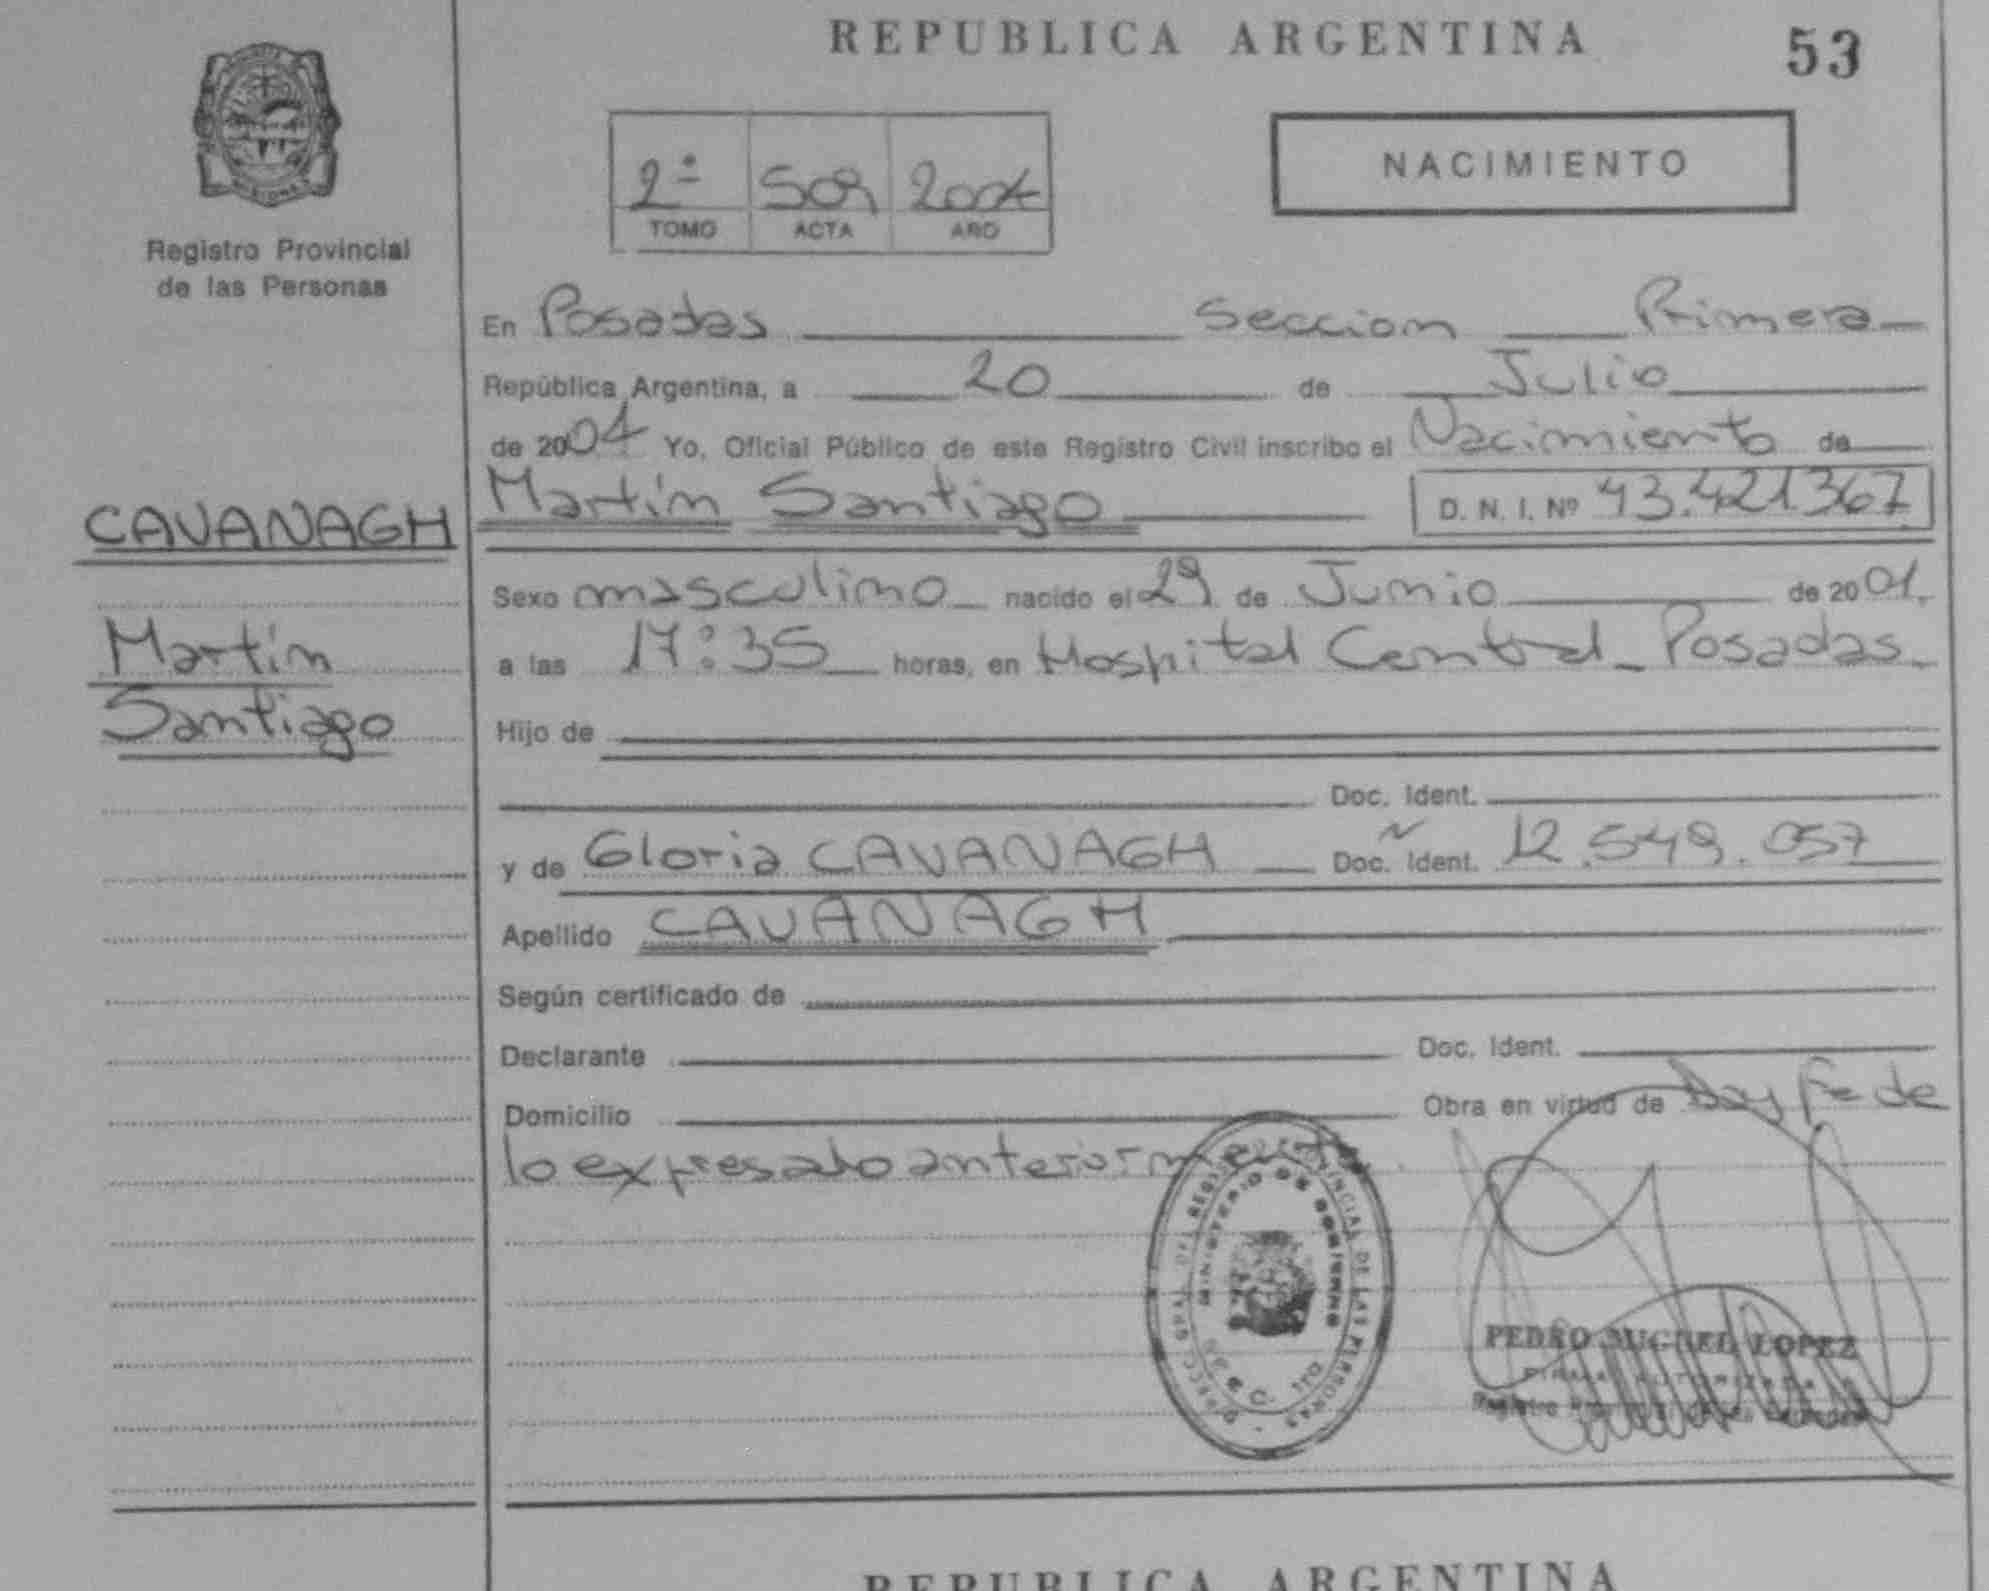 REPUBLICA ARGENTINA
53
2ª 509 2004
TOMO ACTA AÑO
NACIMIENTO
Registro Provincial
de las Personas
En Posadas Seccion Primera
República Argentina, a 20 de Julio
de 2004 Yo, Oficial Público de este Registro Civil inscribo el Nacimiento de
CAVANAGH
Martín Santiago D. N. I. Nº 43.421.367
Sexo masculino nacido el 29 de Junio de 2001.
Martín
a las 17:35 horas, en Hospital Central - Posadas
Santiago
Hijo de
Doc. Ident.
y de Gloria CAVANAGH Doc. Ident. 12.549.057
Apellido CAVANAGH
Según certificado de
Declarante Doc. Ident.
Domicilio Obra en virtud de Doy fe de
lo expresado anteriormente.
MINISTERIO DE GOBIERNO
PEDRO MIGUEL LOPEZ
REPUBLICA ARGENTINA